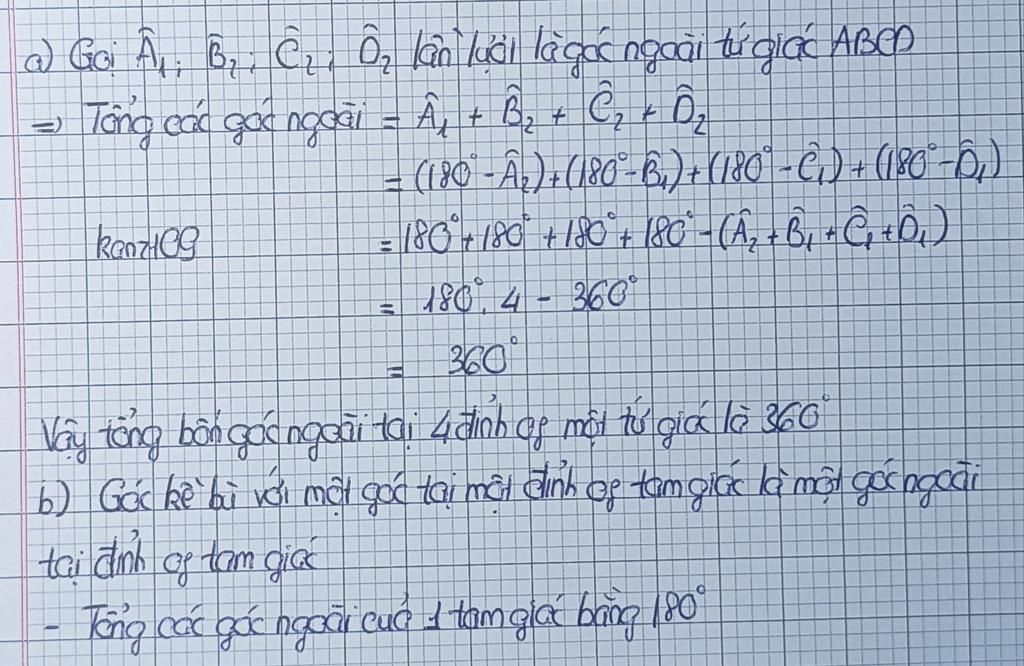 a) Gọi Â₁; B̂₂; Ĉ₂; D̂₂ lần lượt là góc ngoài tứ giác ABCD
=> Tổng các góc ngoài = Â₁ + B̂₂ + Ĉ₂ + D̂₂
= (180° - Â₂) + (180° - B̂₁) + (180° - Ĉ₁) + (180° - D̂₁)
kenz109 = 180° + 180° + 180° + 180° - (Â₂ + B̂₁ + Ĉ₁ + D̂₁)
= 180°. 4 - 360°
= 360°
Vậy tổng bốn góc ngoài tại 4 đỉnh of một tứ giác là 360°
b) Góc kề bù với một góc tại một đỉnh of tam giác là một góc ngoài
tại đỉnh of tam giác
- Tổng các góc ngoài cuả 1 tam giác bằng 180°